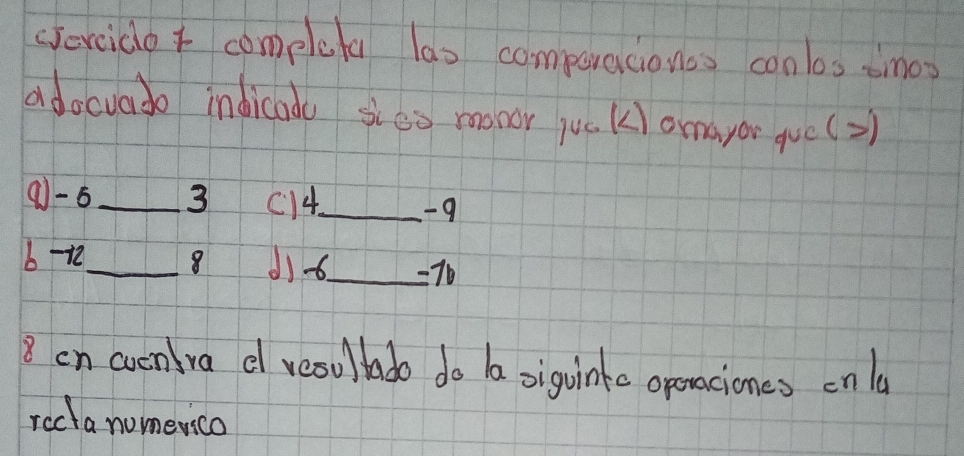 ejercicio 7 completa las comparaciones con los sinos
adocuado indicado si es monor que (<) o mayor que (>)
a) -5 ____ 3 c) 4 ____ -9
b -12 ____ 8 d) -6 ____ -10
8 en cuentra el resultado do la siguinte operaciones en la
recta numerico